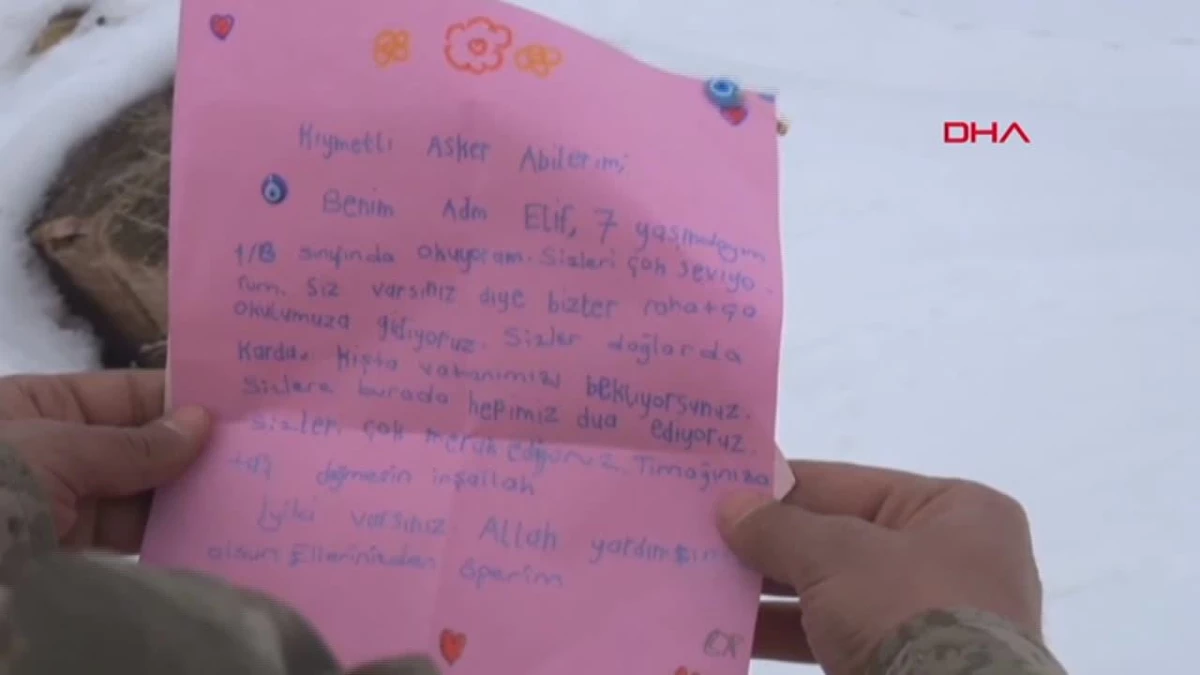 DHA
Kıymetli Asker Abilerim;
Benim Adım Elif, 7 yaşındayım
1/B sınıfında okuyorum. Sizleri çok seviyo
rum. Siz varsınız diye bizler rahatça
okulumuza gidiyoruz. Sizler dağlarda
Karda, Kışta vatanımızı bekliyorsunuz.
Sizlere burada hepimiz dua ediyoruz.
Sizleri çok merak ediyoruz. Tırnağınıza
taş değmesin inşallah
İyiki varsınız. Allah yardımcınız
olsun Ellerinizden öperim